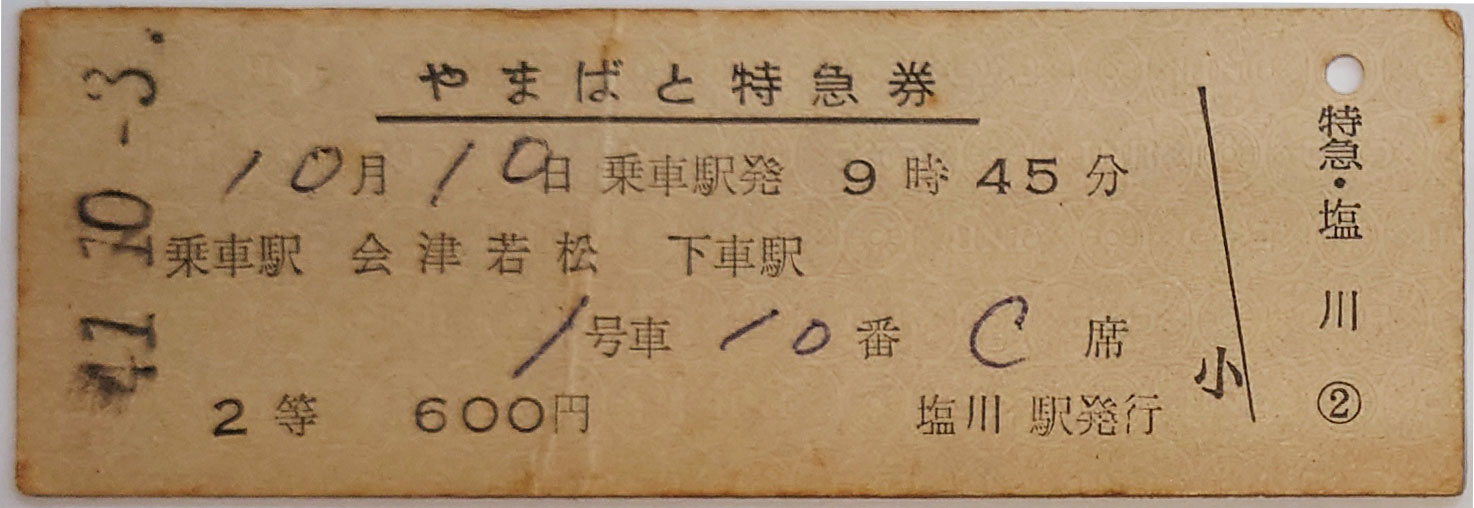 41.10.-3.
やまばと特急券
10月10日 乗車駅発 9時45分
乗車駅 会津若松 下車駅
1号車 10番 C席
2等 600円 塩川駅発行
小
特急・塩川②